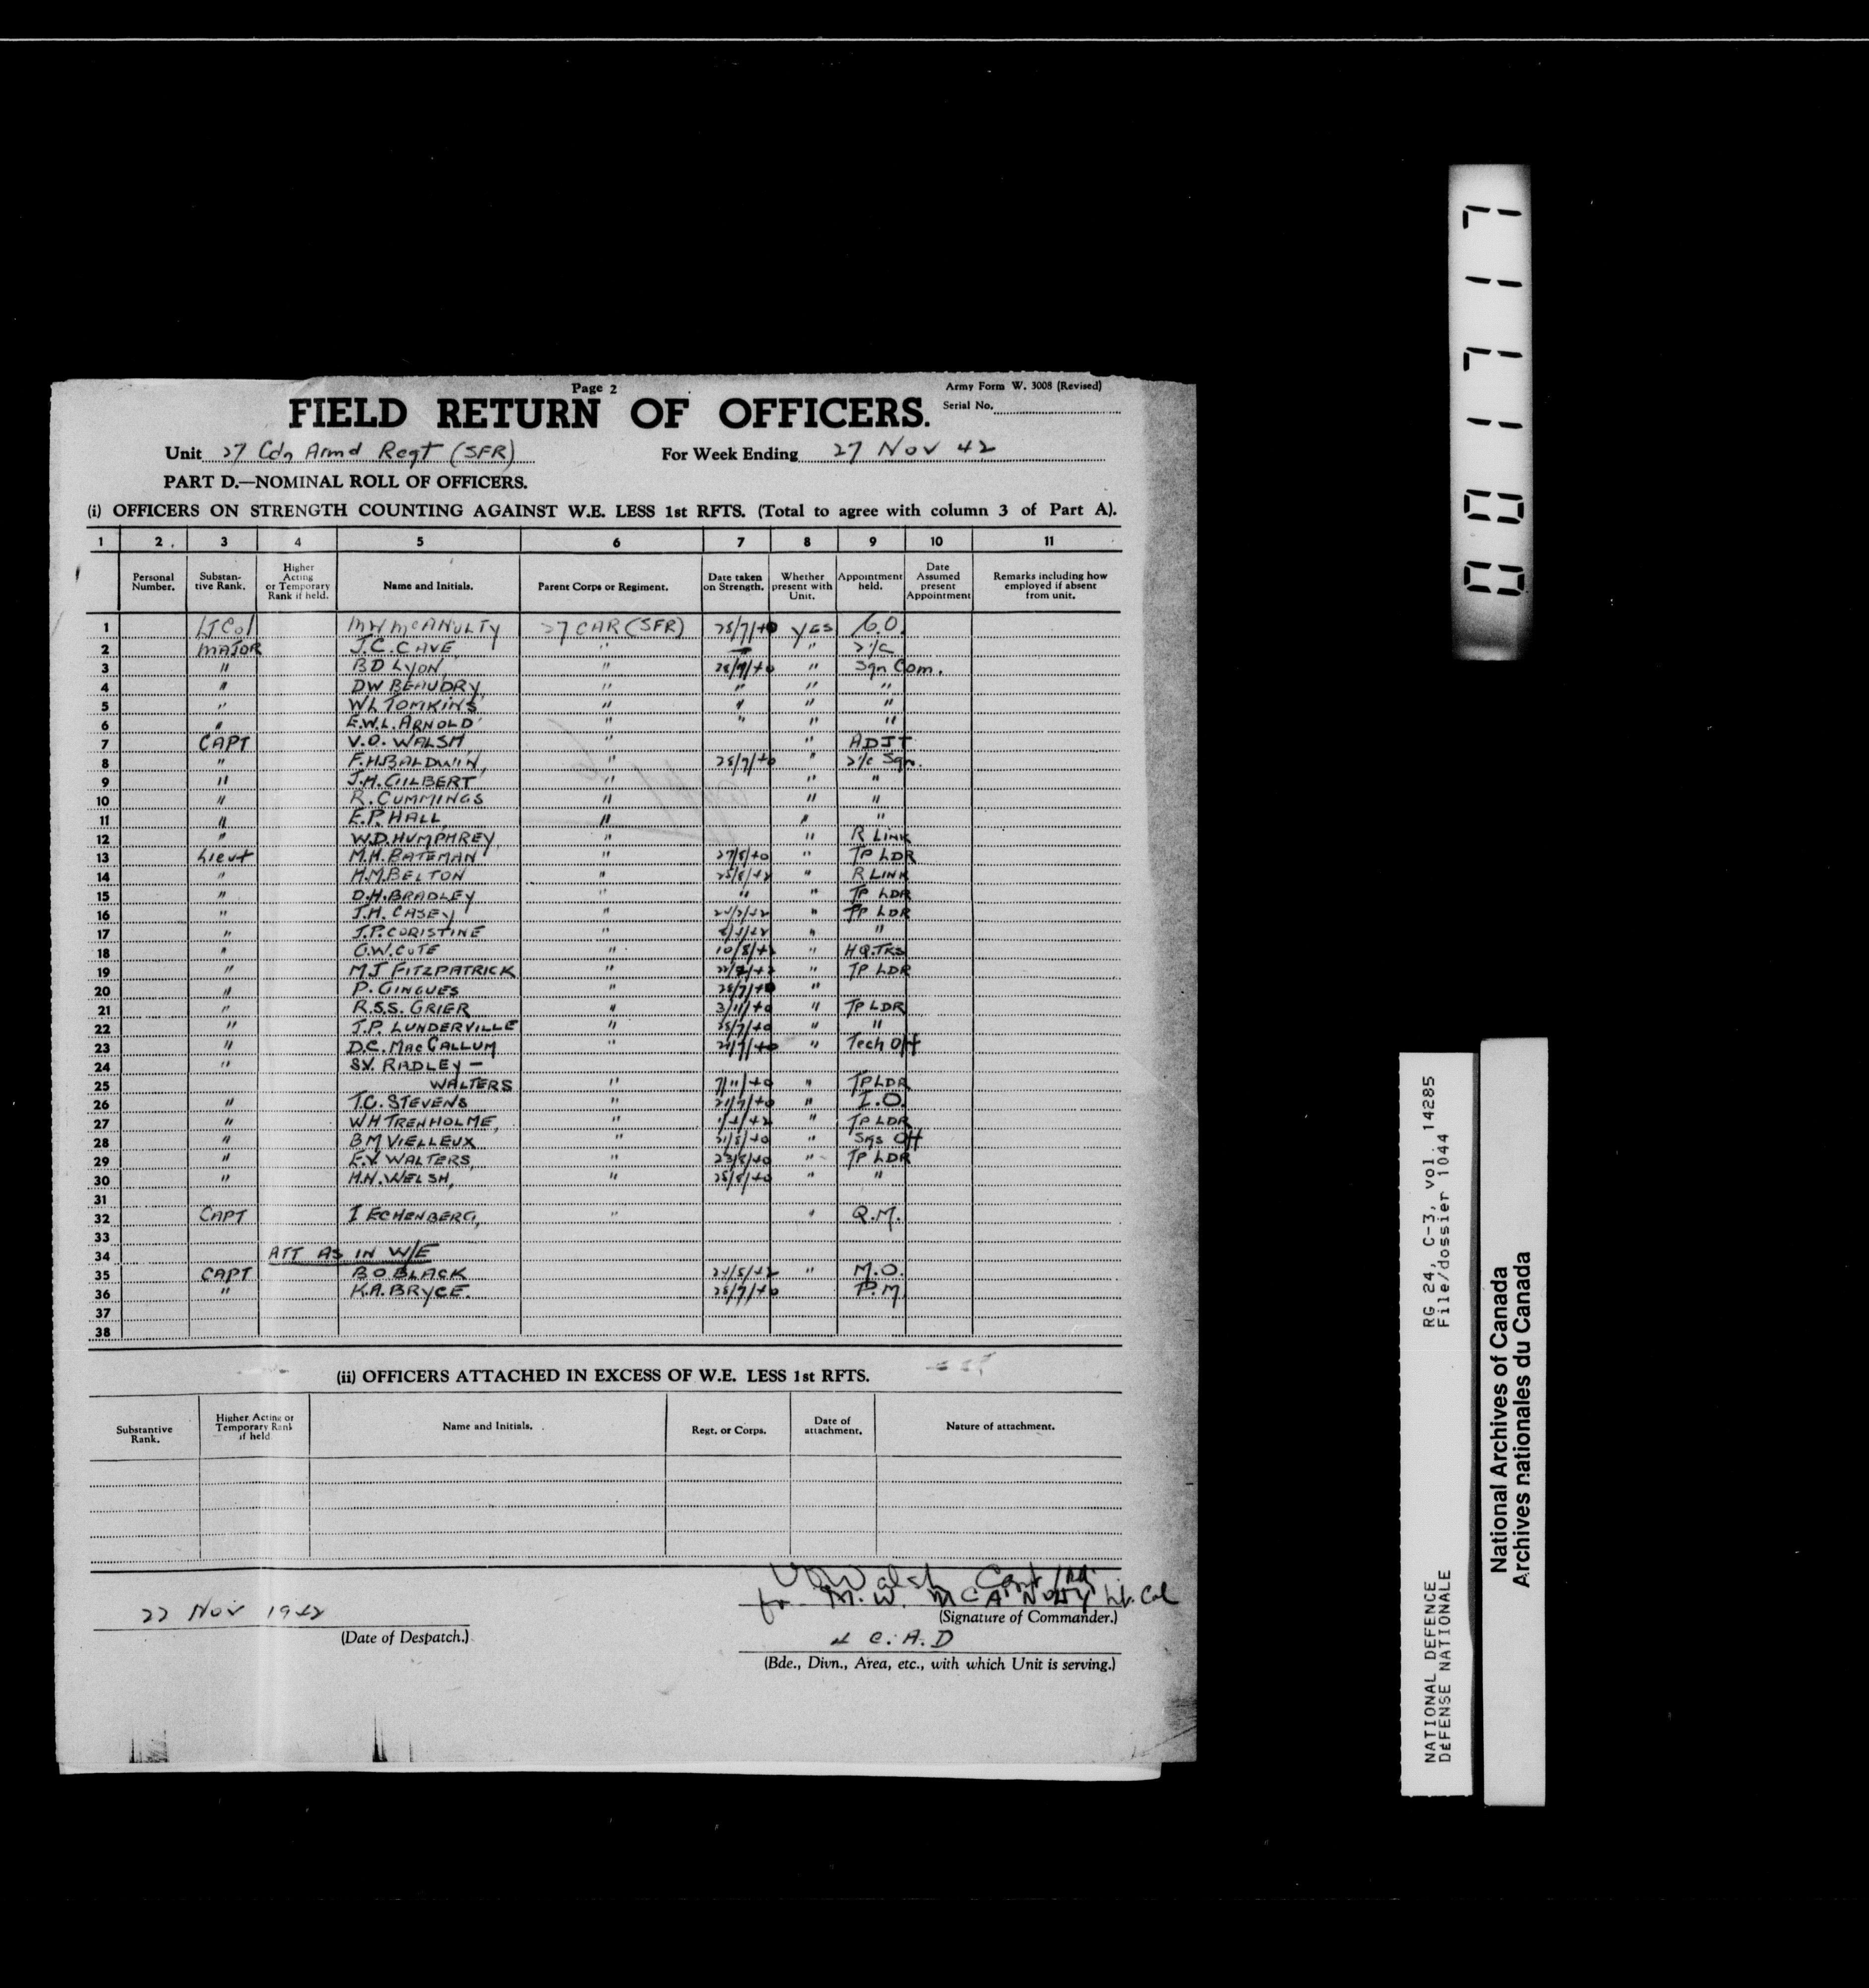 Page 2
Army Form W. 3008 (Revised)
FIELD RETURN OF OFFICERS.
Serial No.
Unit 27 Cdn Armd Regt (SFR) For Week Ending 27 Nov 42
PART D.—NOMINAL ROLL OF OFFICERS.
(i) OFFICERS ON STRENGTH COUNTING AGAINST W.E. LESS 1st RFTS. (Total to agree with column 3 of Part A).
1 2 3 4 5 6 7 8 9 10 11
Personal Number. Substantive Rank. Higher Acting or Temporary Rank if held. Name and Initials. Parent Corps or Regiment. Date taken on Strength. Whether present with Unit. Appointment held. Date Assumed present Appointment Remarks including how employed if absent from unit.
1 Lt Col MW McANULTY 27 CAR (SFR) YES C.O.
2 MAJOR J.C. CAVE " " 2i/c
3 " BD LYON " " Sqn Com.
4 " DW BEAUDRY, " " " "
5 " WL TOMKINS " " " "
6 " E.W.L. ARNOLD " " " "
7 CAPT V.O. WALSH " " ADJT
8 " F.H. BALDWIN, " 25/7/40 " 2i/c Sqn.
9 " J.H. GILBERT " " "
10 " R. CUMMINGS " " "
11 " E.P. HALL " " "
12 " W.D. HUMPHREY, " " R LINK
13 Lieut M.H. BATEMAN " 27/8/40 " TP LDR
14 " H.M. BELTON " 25/8/42 " R LINK
15 " D.H. BRADLEY " " " TP LDR
16 " J.H. CASEY " " TP LDR
17 " J.P. CORISTINE " " "
18 " G.W. COTE " 10/8/42 " HQ. TKS
19 " MJ FITZPATRICK " " TP LDR
20 " P. GINGUES " 25/7/40 "
21 " R.S.S. GRIER " 3/11/40 " TP LDR
22 " J.P. LUNDERVILLE " 25/7/40 " "
23 " D.C. MacCALLUM " " Tech Off
24 " S.V. RADLEY -
25 WALTERS " 7/11/40 " TP LDR
26 " T.G. STEVENS " " I.O.
27 " WH TRENHOLME, " " TP LDR
28 " B M VIELLEUX " " Sigs Off
29 " E.V. WALTERS, " 23/8/40 " TP LDR
30 " H.N. WELSH, " 25/8/40 " "
31
32 CAPT I ECHENBERG, " " Q.M.
33
34 ATT AS IN W/E
35 CAPT B O BLACK " M.O.
36 " K.A. BRYCE. 25/7/40 P.M
37
38
(ii) OFFICERS ATTACHED IN EXCESS OF W.E. LESS 1st RFTS.
Substantive Rank. Higher Acting or Temporary Rank if held Name and Initials. Regt. or Corps. Date of attachment. Nature of attachment.
VO Walsh Capt
for M.W. McANulty Lt. Col
(Signature of Commander.)
27 Nov 1942
(Date of Despatch.)
4 C. A. D
(Bde., Divn., Area, etc., with which Unit is serving.)
001717
RG 24, C-3, vol. 14285
File/dossier 1044
NATIONAL DEFENCE
DÉFENSE NATIONALE
National Archives of Canada
Archives nationales du Canada